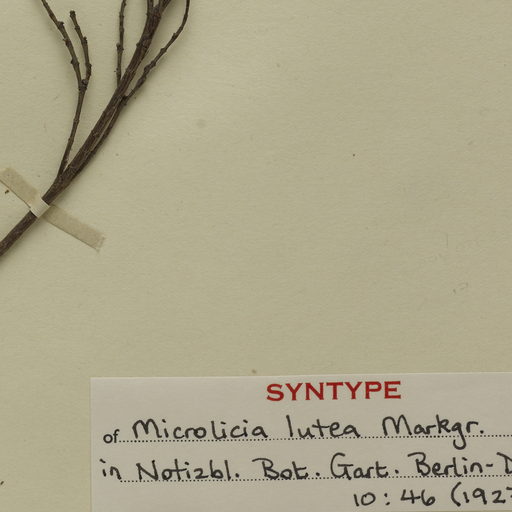 SYNTYPE
of Microlicia lutea Markgr.
in Notizbl. Bot. Gart. Berlin-D
10: 46 (1927